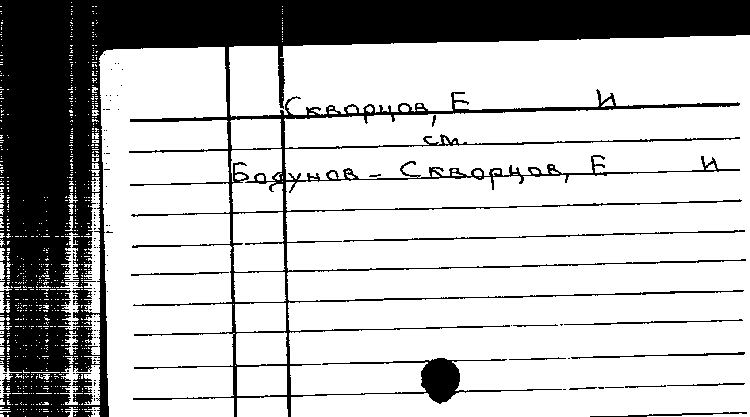 Скворцов, Е И
см.
Бодунов - Скворцов, Е И